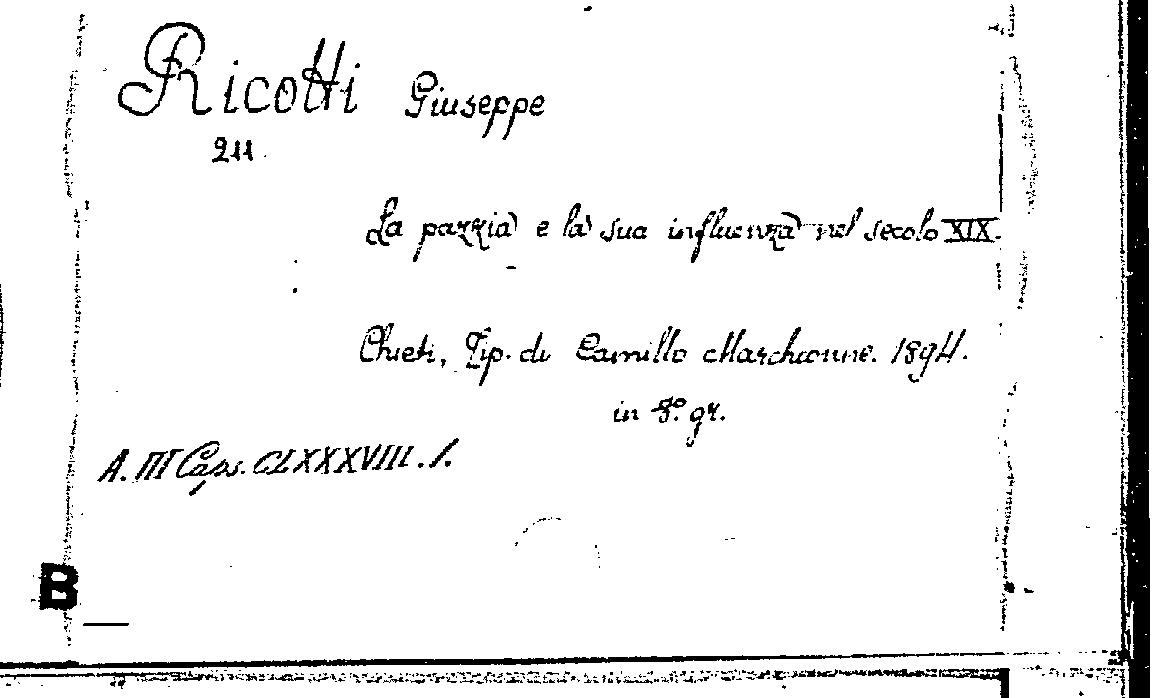 Ricotti Giuseppe
211
La pazzia e la sua influenza nel secolo XIX.
Chieti, Tip. di Camillo Marchionne. 1894.
in 8.° gr.
A. III Caps. CLXXXVIII. 1.
B